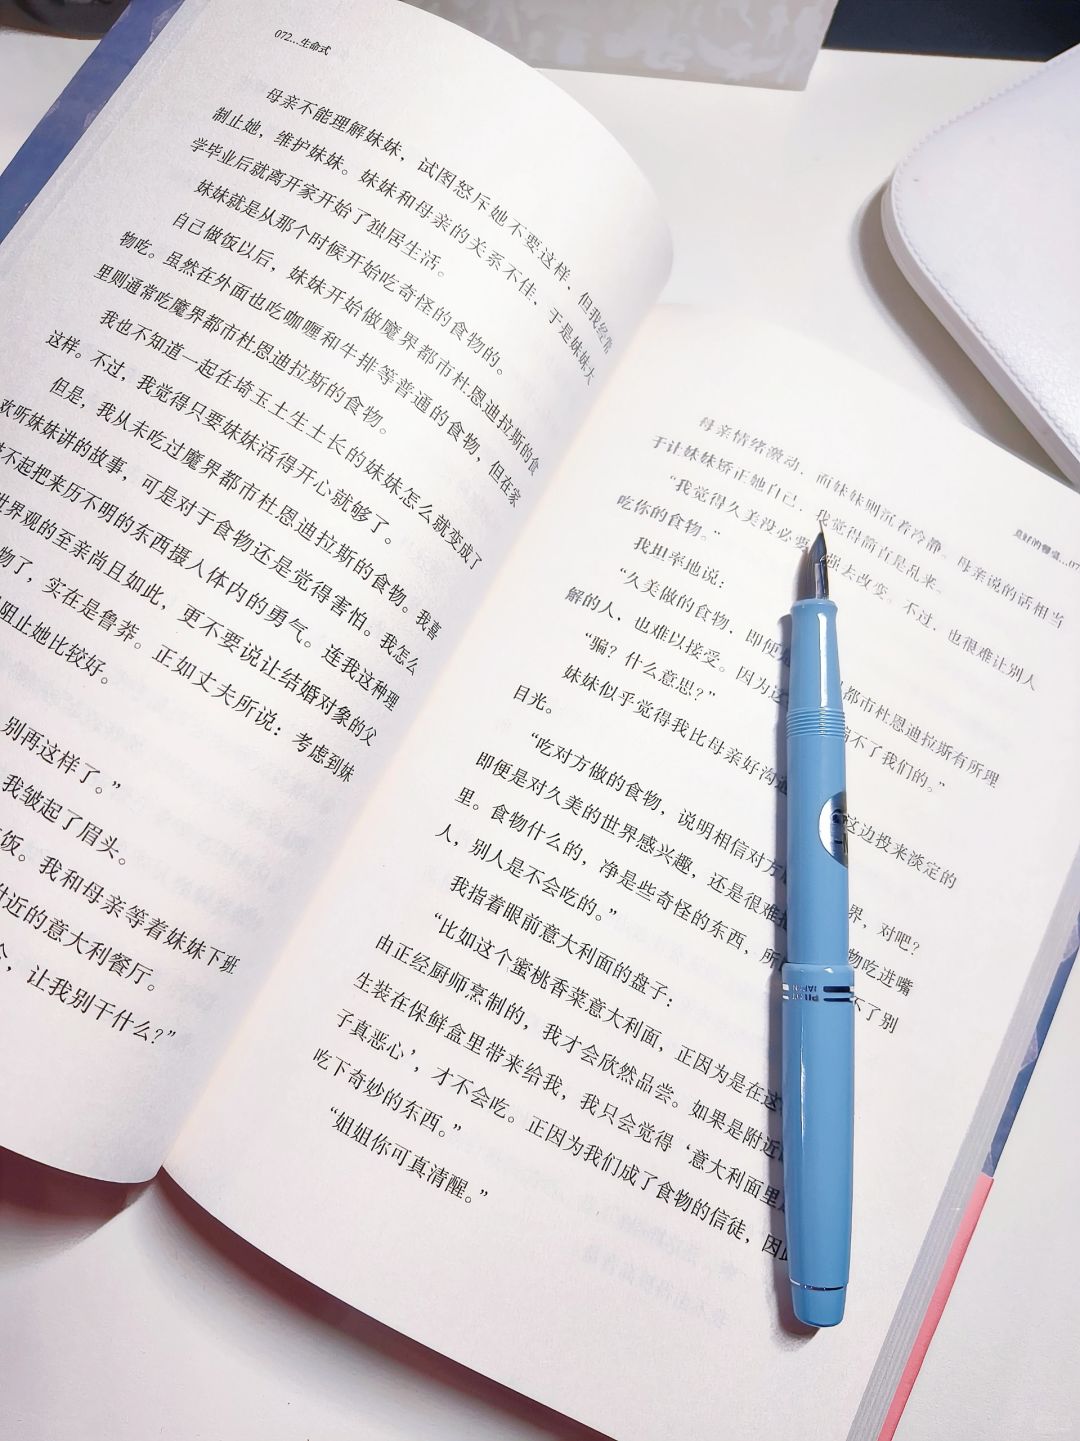 072...生命式
母亲不能理解妹妹，试图怒斥她不要这样，但我经常
制止她，维护妹妹。妹妹和母亲的关系不佳，于是妹妹大
学毕业后就离开家开始了独居生活。
妹妹就是从那个时候开始吃奇怪的食物的。
自己做饭以后，妹妹开始做魔界都市杜恩迪拉斯的食
物吃。虽然在外面也吃咖喱和牛排等普通的食物，但在家
里则通常吃魔界都市杜恩迪拉斯的食物。
我也不知道一起在埼玉土生土长的妹妹怎么就变成了
这样。不过，我觉得只要妹妹活得开心就够了。
但是，我从未吃过魔界都市杜恩迪拉斯的食物。我喜
欢听妹妹讲的故事，可是对于食物还是觉得害怕。我怎么
不起把来历不明的东西摄人体内的勇气。连我这种理
世界观的至亲尚且如此，更不要说让结婚对象的父
物了，实在是鲁莽。正如丈夫所说：考虑到妹
阻止她比较好。
别再这样了。”
我皱起了眉头。
饭。我和母亲等着妹妹下班
附近的意大利餐厅。
，让我别干什么？”
母亲情绪激动，而妹妹则沉着冷静。母亲说的话相当
于让妹妹矫正她自己，我觉得简直是乱来。
“我觉得久美没必要强去改变。不过，也很难让别人
吃你的食物。”
我坦率地说：
“久美做的食物，即便 都市杜恩迪拉斯有所理
解的人，也难以接受。因为这 骗不了我们的。”
“骗？什么意思？”
妹妹似乎觉得我比母亲好沟通 这边投来淡定的
目光。
“吃对方做的食物，说明相信对方 界，对吧？
即便是对久美的世界感兴趣，还是很难 物吃进嘴
里。食物什么的，净是些奇怪的东西，所 不了别
人，别人是不会吃的。”
我指着眼前意大利面的盘子：
“比如这个蜜桃香菜意大利面，正因为是在这
由正经厨师烹制的，我才会欣然品尝。如果是附近
生装在保鲜盒里带来给我，我只会觉得‘意大利面里
子真恶心’，才不会吃。正因为我们成了食物的信徒，因
吃下奇妙的东西。”
“姐姐你可真清醒。”
PILOT
JAPAN